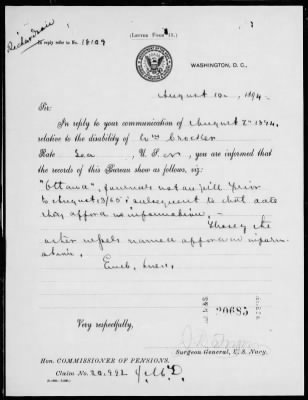 (LETTER FORM 13.)
In reply refer to No. 18109
WASHINGTON, D. C.,
August 10, 1894.
Sir:
In reply to your communication of August 2nd 1894,
relative to the disability of Wm Crocker
Rate Sea, U. S. N., you are informed that
the records of this Bureau show as follows, viz:
"Ottawa", journals not on file prior
to August 13/65; subsequent to that date
they afford no information. —
the
other vessels named afford no inform-
ation.
20685
Very respectfully,
Surgeon General, U. S. Navy.
HON. COMMISSIONER OF PENSIONS.
Claim No. 20,992